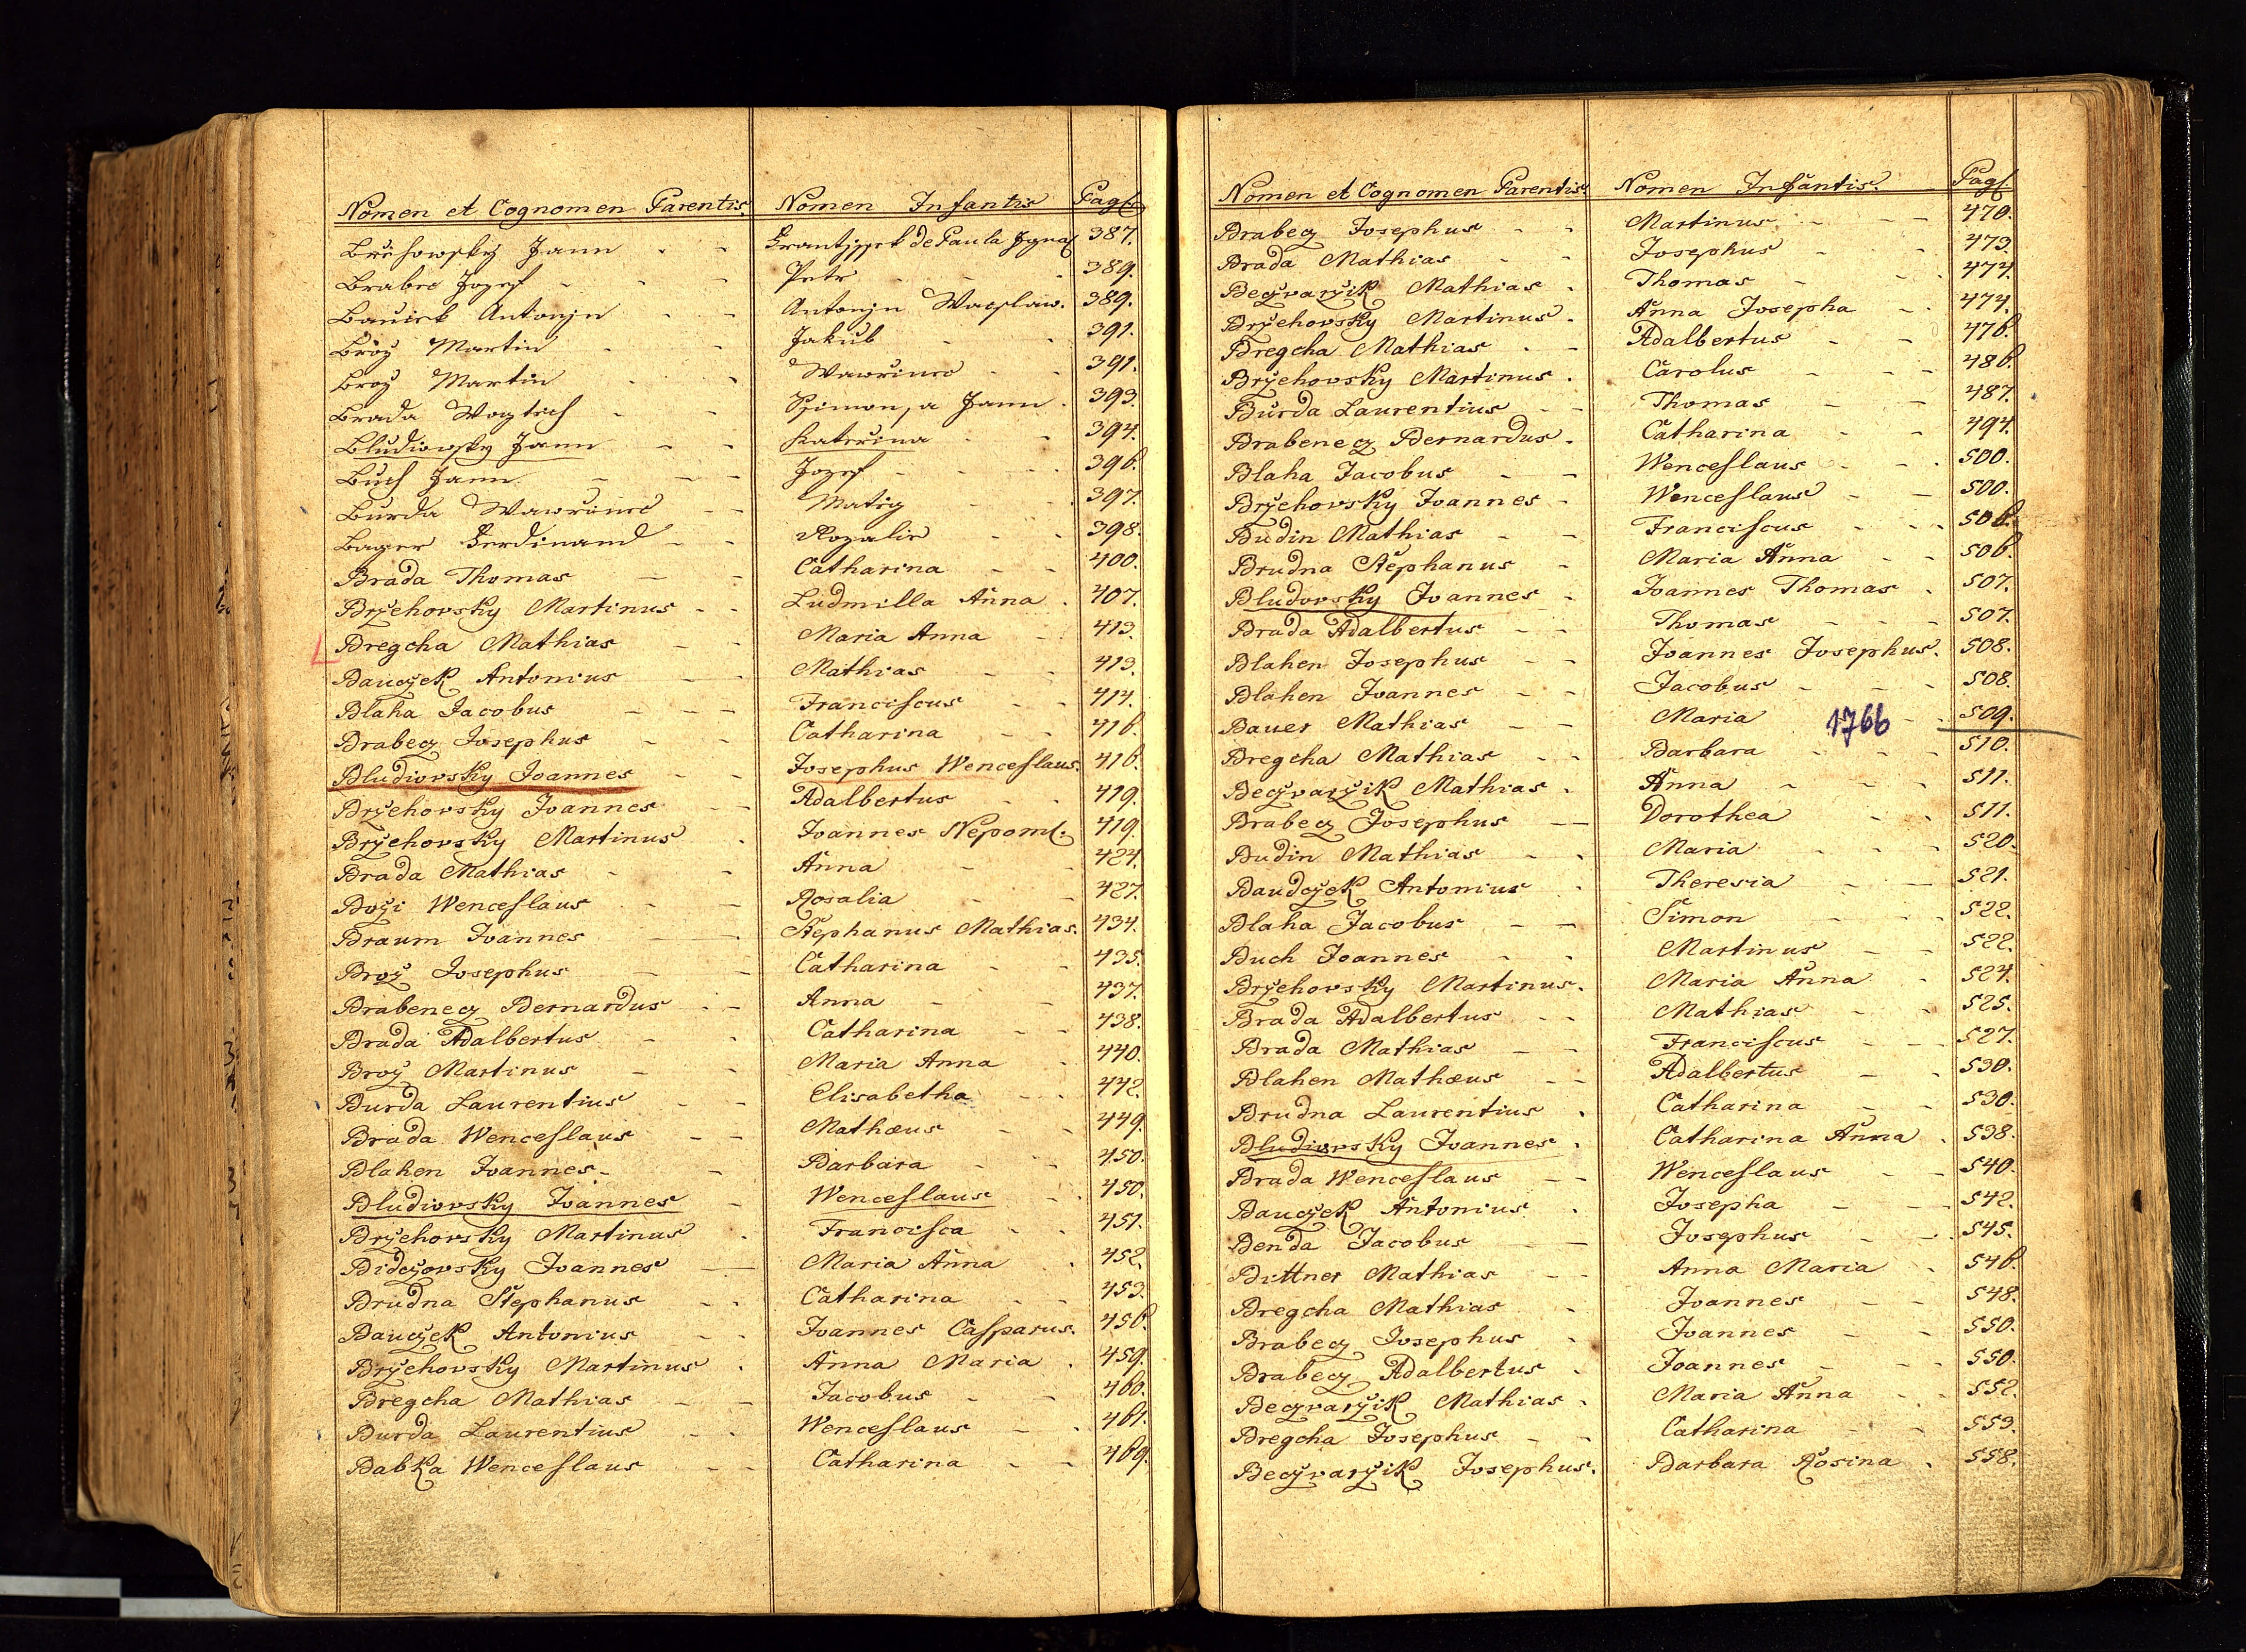 Nomen et Cognomen Parentis Nomen Infantis Pag.
Břehowsky Jann Frantissek de Paula Jgnac 387.
Brabec Jozef Petr 389.
Bauček Antonjn Antonjn Waczlaw. 389.
Brož Martin Jakub 391.
Brož Martin Wawřinec 391.
Brada Wogtech Ssimon, a Jann 393.
Bludiowsky Jann Kateřina 394.
Buch Jann Jozef 396.
Burda Wawřinec Matěg 397.
Bager Ferdinand Rozalie 398.
Brada Thomas Catharina 400.
Brzehovsky Martinus Ludmilla Anna 407.
Bregcha Mathias Maria Anna 413.
Bauczek Antonius Mathias 413.
Blaha Jacobus Franciscus 414.
Brabecz Josephus Catharina 416.
Bludiovsky Joannes Josephus Wenceslaus. 416.
Brzehovsky Joannes Adalbertus 419.
Brzehovsky Martinus Joannes Nepom. 419.
Brada Mathias Anna 424.
Bozi Wenceslaus Rosalia 427.
Braum Joannes Stephanus Mathias. 434.
Broz Josephus Catharina 435.
Brabenecz Bernardus Anna 437.
Brada Adalbertus Catharina 438.
Broz Martinus Maria Anna 440.
Burda Laurentius Elisabetha 442.
Brada Wenceslaus Mathæus 449.
Blahen Joannes Barbara 450.
Bludiovsky Joannes Wenceslaus 450.
Brzehovsky Martinus Francisca 451.
Bidczovsky Joannes Maria Anna 452.
Brudna Stephanus Catharina 453.
Bauczek Antonius Joannes Casparus. 456.
Brzehovsky Martinus Anna Maria 459.
Bregcha Mathias Jacobus 460.
Burda Laurentius Wenceslaus 461.
Babka Wenceslaus Catharina 469.
Nomen et Cognomen Parentis Nomen Infantis. Pag.
Brabecz Josephus Martinus 470.
Brada Mathias Josephus 473.
Beczvarzik Mathias Thomas 474.
Brzehovsky Martinus Anna Josepha 474.
Bregcha Mathias Adalbertus 476.
Brzehovsky Martinus Carolus 486.
Burda Laurentius Thomas 487.
Brabenecz Bernardus Catharina 494.
Blaha Jacobus Wenceslaus 500.
Brzehovsky Joannes Wenceslaus 500.
Budin Mathias Franciscus 506.
Brudna Stephanus Maria Anna 506.
Bludovsky Joannes Joannes Thomas 507.
Brada Adalbertus Thomas 507.
Blahen Josephus Joannes Josephus. 508.
Blahen Joannes Jacobus 508.
Bauer Mathias Maria 1766 509.
Bregcha Mathias Barbara 510.
Beczvarzik Mathias Anna 511.
Brabecz Josephus Dorothea 511.
Budin Mathias Maria 520.
Baudczek Antonius Theresia 521.
Blaha Jacobus Simon 522.
Buch Joannes Martinus 522.
Brzehovsky Martinus Maria Anna 524.
Brada Adalbertus Mathias 525.
Brada Mathias Franciscus 527.
Blahen Mathæus Adalbertus 530.
Brudna Laurentius Catharina 530.
Bludiovsky Joannes Catharina Anna 538.
Brada Wenceslaus Wenceslaus 540.
Bauczek Antonius Josepha 542.
Benda Jacobus Josephus 545.
Bittner Mathias Anna Maria 546.
Bregcha Mathias Joannes 548.
Brabecz Josephus Joannes 550.
Brabecz Adalbertus Joannes 550.
Beczvarzik Mathias Maria Anna 552.
Bregcha Josephus Catharina 553.
Beczvarzik Josephus. Barbara Rosina 558.